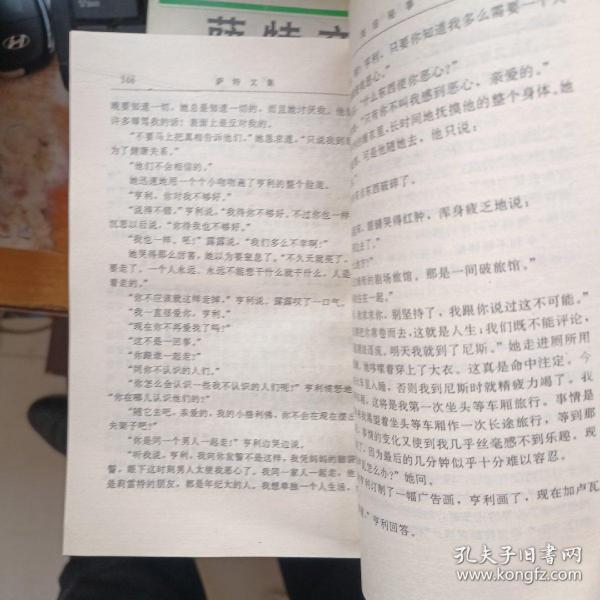 萨特文
166
萨特文集
晚要知道一切。她总是知道一切的，而且她讨厌我，他
许多辱骂我的话；表面上是反对我的。
“不要马上把真相告诉他们。”她恳求道。“只说我到
为了健康关系。”
“他们不会相信的。”
她迅速地用一个个小吻吻遍了亨利的整个脸庞。
“亨利，你对我不够好。”
“说得不错。”亨利说，“我待你不够好。不过你也一样
沉思以后说，“你待我也不够好。”
“我也一样。吧！”露露说，“我们多么不幸啊！”
她哭得那么厉害，她以为要窒息了。“不久天就亮了，
要走了。一个人永远、永远不能想干什么就干什么，人是
着走的。”
“你不应该就这样走掉。”亨利说。露露叹了一口气。
“我一直很爱你，亨利。”
“现在你不再爱我了吗？”
“这不是一回事。”
“你跟谁一起走？”
“同你不认识的人。”
“你怎么会认识一些我不认识的人们呢？”亨利愤怒地
“你在哪儿认识他们的？”
“随它去吧，亲爱的，我的小格利佛，你不会在现在摆出
夫妻子吧？”
“你是同一个男人一起走！”亨利边哭边说。
“听我说，亨利，我向你发誓不是这样，我凭妈妈的脑袋
誓，眼下这时刻男人太使我恶心了。我同一家人一起走，他
是莉雷特的朋友，都是年纪大的人。我想单独一个人生活，
亨利，只要你知道我多么需要一个
恶心。”
“什么东西使你恶心？”
“只有你不叫我感到恶心，亲爱的。”
衣里，长时间地抚摸他的整个身体。
可是他随她去，他只说：
东西破碎了。
眼睛哭得红肿，浑身疲乏地说：
去了。”
的剧场旅馆，那是一间破旅馆。”
在一起。”
求求你，别坚持了，我跟你说过这不可能。”
把你席卷而去，这就是人生；我们既不能评论，
明天我就到了尼斯。”她走进厕所用
她哆嗦着穿上了大衣。这真是命中注定。今
车里入睡，否则我到尼斯时就精疲力竭了。我
这将是我第一次坐头等车厢旅行。事情是
我希望着坐头等车厢作一次长途旅行，等到那
事情的变化又使到我几乎丝毫感不到乐趣。现
因为最后的几分钟似乎十分难以容忍。
怎么办？”她问。
订制了一幅广告画，亨利画了，现在加卢瓦
亨利回答。
孔夫子旧书网
www.kongfz.com